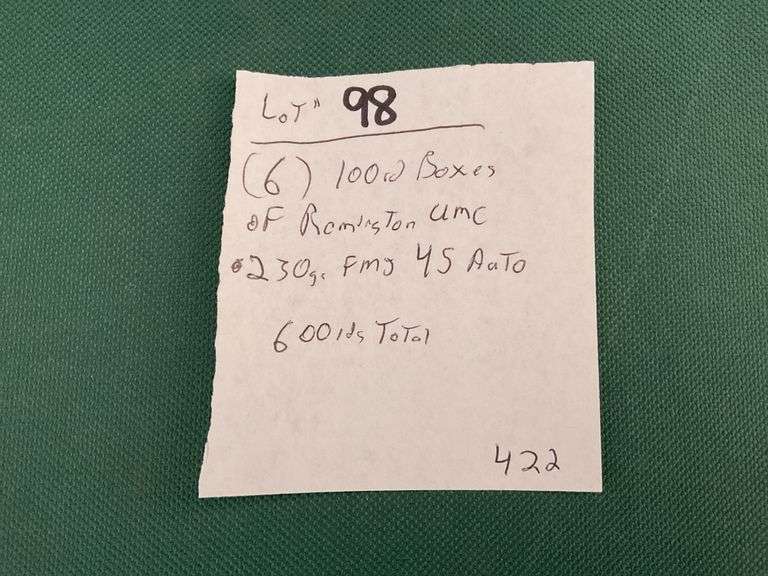 Lot # 98
(6) 100rd Boxes
of Remington UMC
230gr FMJ 45 Auto
600rds Total
422